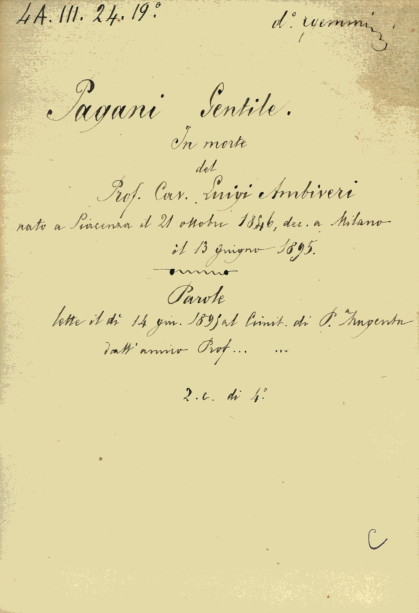 4A. III. 24. 19°
d°. Gemmi
Pagani Gentile.
In morte
del
Prof. Cav. Luigi Ambiveri
nato a Piacenza il 21 ottobre 1846, dec. a Milano
il 13 giugno 1895.
Parole
lette il dì 14 giu. 1895 al Cimit. di P. Magenta
dall'amico Prof... ...
2. c. di 4°.
C